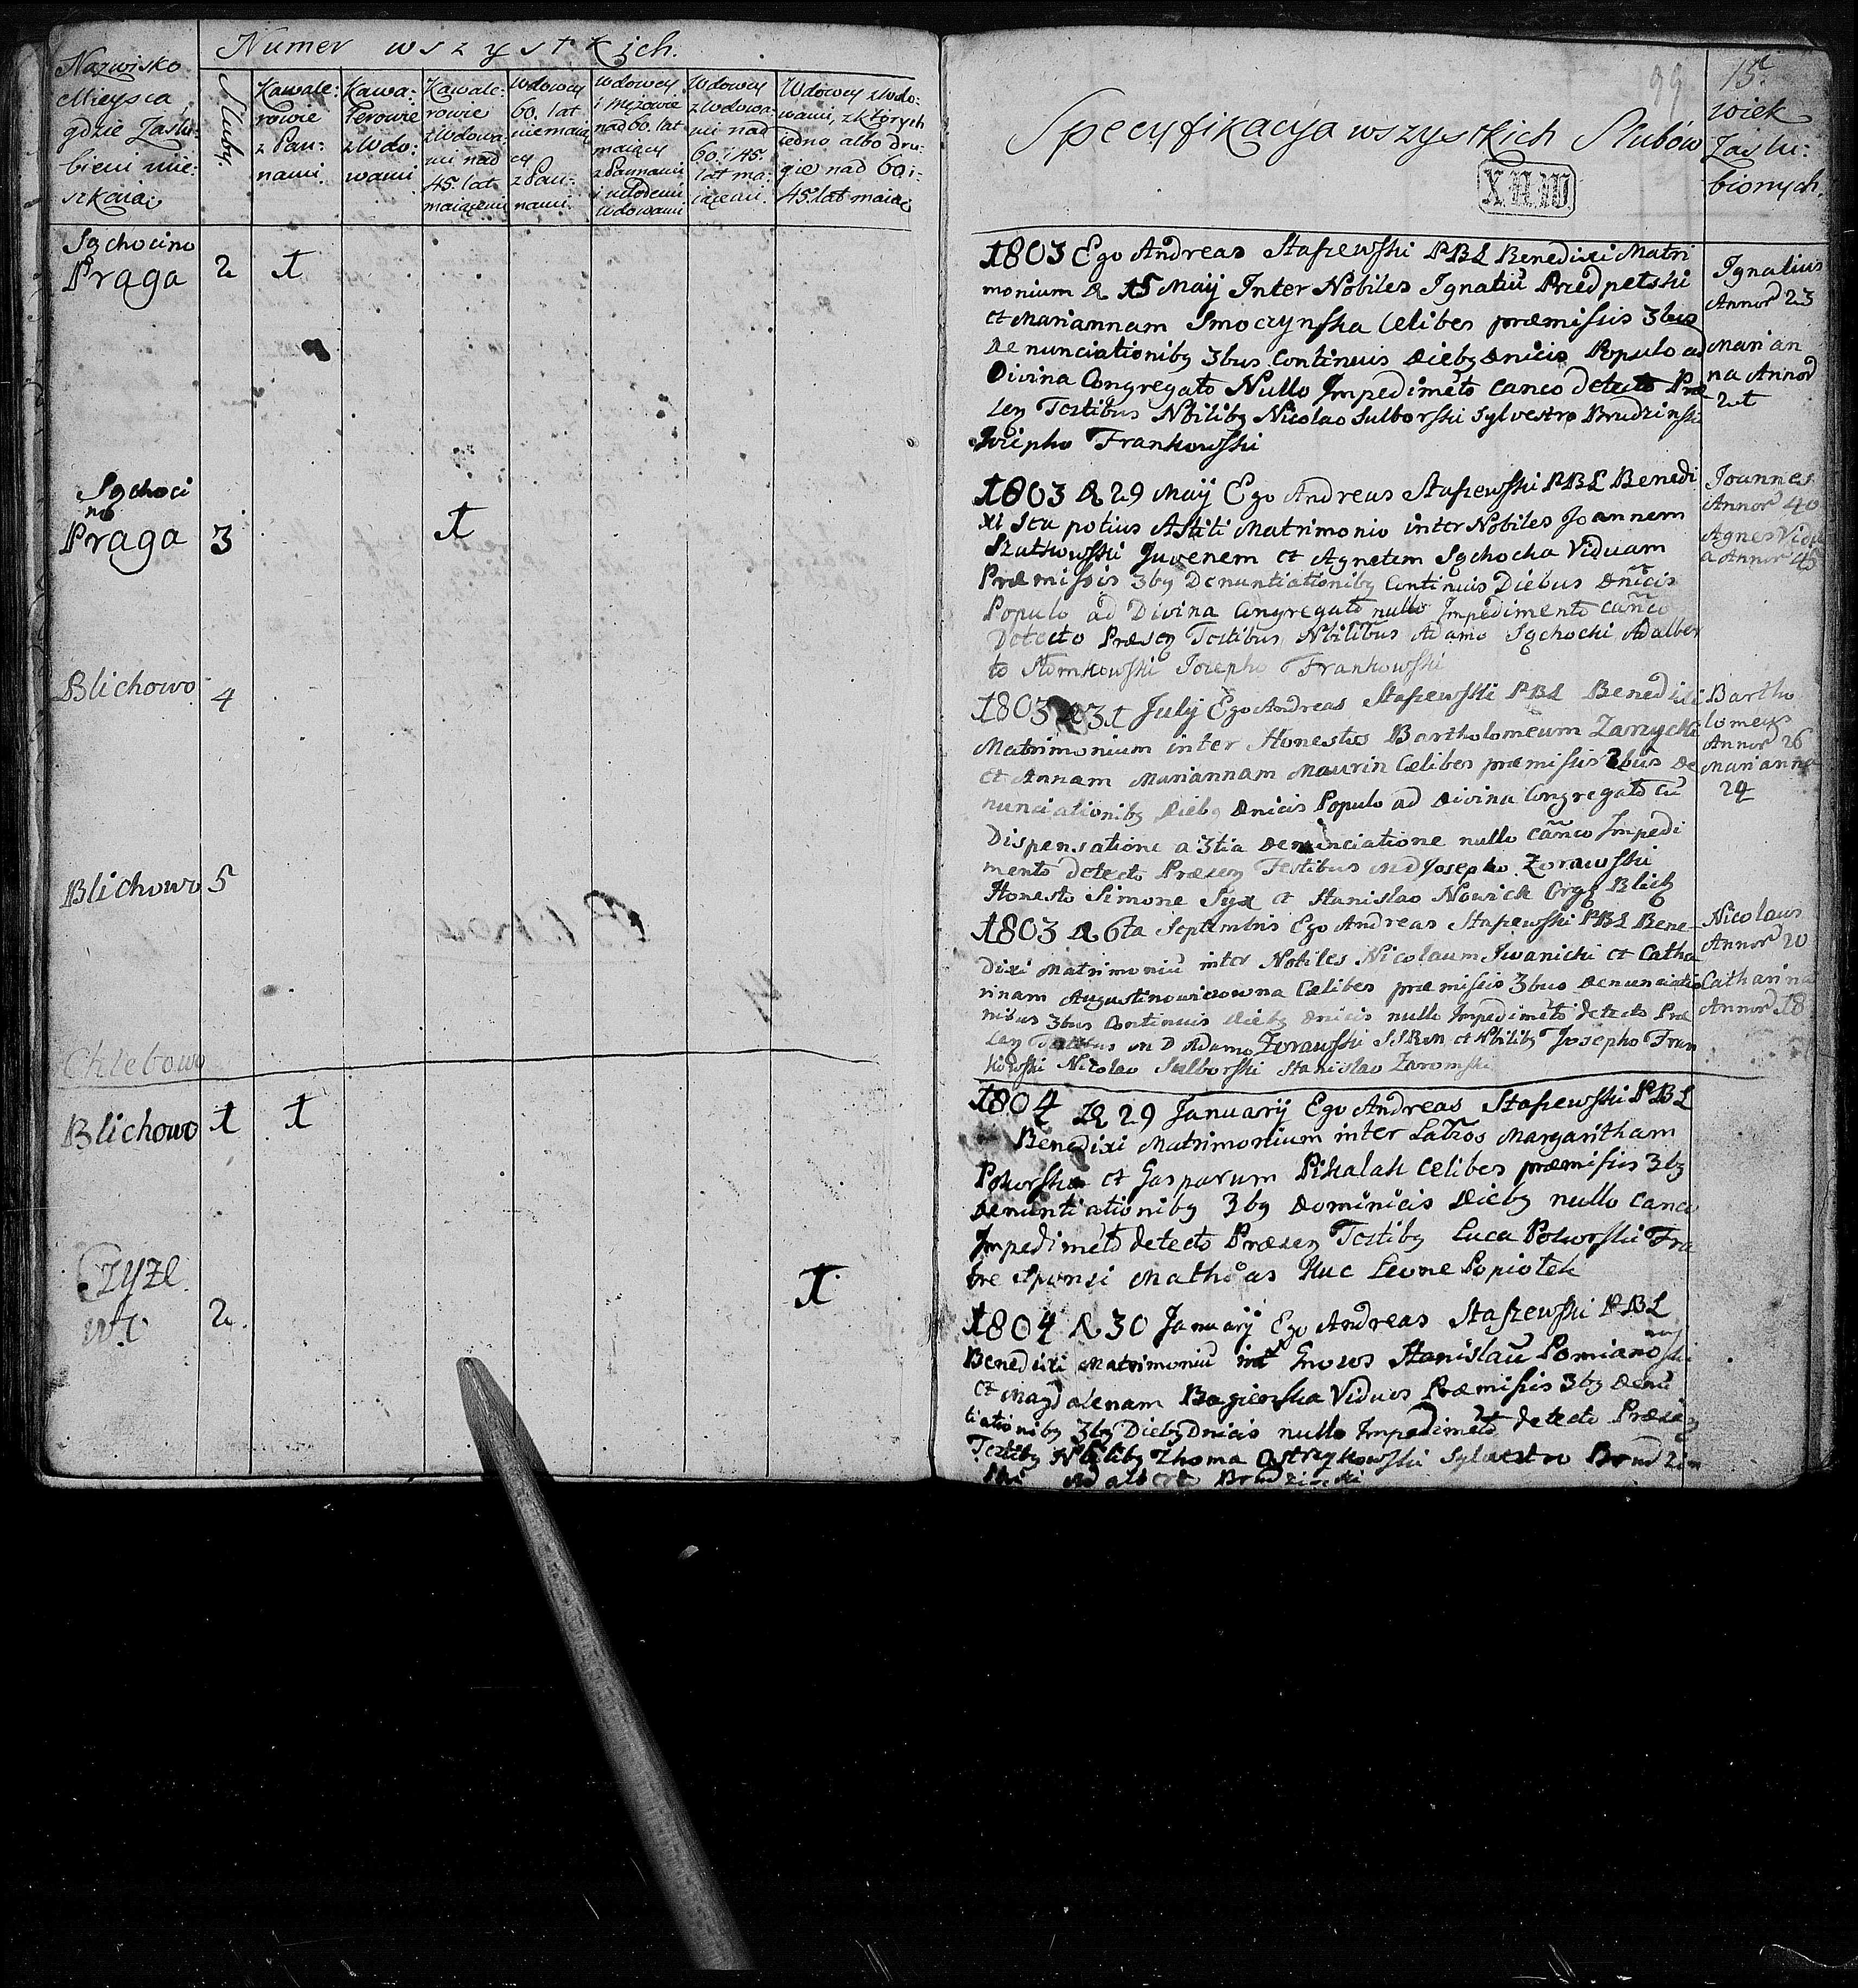 Numer wszystkich.
Nazwisko
Mieysca
gdzie Zaslu-
bieni mie-
szkaią
Sluby.
Kawale:
rowie
z Pan:
nami.
Kawa:
lerowie
z Wdo:
wami
Kawale:
rowie
z Wdowa:
mi nad
45. lat
maiącemi
Wdowcy
60. lat
niemaią
cy
z Pan:
nami.
Wdowcy
i Mężowie
nad 60. lat
maiący
z Pannami
i młodemi
Wdowami
Wdowcy
z Wdowa:
mi nad
60. i 45.
lat ma:
iącemi.
Wdowcy z Wdo:
wami, z których
iedno albo dru:
gie nad 60 i:
45. lat maią
Sąchocino
Praga 2 1
Sąchoci
no
Praga 3 1
Blichowo 4
Blichowo 5
Chlebowo
Blichowo 1 1
Czyże
wo 2. 1
99
15.
Specyfikacya wszystkich Slubów
XNIW
wiek
Zaslu:
bionych.
1803 Ego Andreas Staszewski PBL Benedixi Matri
monium D 15 Maij Inter Nobiles Ignatiũ Przedpetski
et Mariannam Smoczynska Celibes præmissis 3bus
Denunciationibq 3bus Continuis Diebq Dnicis Populo ad
Divina Congregato Nullo Impedimẽto canco detecto Præ
seq Testibus Nbilibq Nicolao Sulborski Sylvestro Brudzinski
Josepho Frankowski
Ignatius
Annor 23
Marian
na Annor
21
1803 D 29 Maij Ego Andreas Staszewski PBL Benedi
xi seu potius Astiti Matrimonio inter Nobiles Joannem
Szutkowski Juvenem et Agnetem Sąchocka Viduam
Præmissis 3bq Denuntiationibq Continuis Diebus Dñicis
Populo ad Divina Congregato nullo Impedimento cañco
Detecto Præseq Testibus Nbilibus Adamo Sąchocki Adalber
to Romkowski Josepho Frankowski
Joannes
Annor 40
Agnes Vidu
a Annor 45
1803 D 31 July Ego Andreas Staszewski PBL Benedixi
Matrimonium inter Honestos Bartholomeum Zarzycki
et Annam Mariannam Maurin Cælibes præmissis 2bus De
nunciationibq Diebq Dnicis Populo ad Divina Congregato cũ
Dispensatione a 3tia Denunciatione nullo cañco Impedi
mento detecto Præseq Testibus MD Josepho Zorawski
Honesto Simone Syx et Stanislao Nowick Orgs Blich
Bartho
lomeus
Annor 26
Marianna
24
1803 D 6ta Septembris Ego Andreas Staszewski PBL Bene-
dixi Matrimoniũ inter Nobiles Nicolaum Iwanicki et Catha
rinam Augustinowiczowna Cælibes præmissis 3bus Denunciatio
nibus 3bus Continuis Diebq Dnicis nullo Impedimẽto detecto Præ
seq Testibus MD Adamo Zorawski SSRM et Nbilibq Josepho Fran
kowski Nicolao Sulborski Stanislao Zaromski
Nicolaus
Annor 20
Catharina
Annor 18
1804 D 29 Januarij Ego Andreas Staszewski PBL
Benedixi Matrimonium inter Labros Margaritham
Pokorska et Gasparum Pikalak Celibes præmissis 3bq
Denuntiationibq 3bq Dominicis Diebq nullo canco
Impedimẽto detecto Præseq Testibq Luca Pokorski Fra
tre Sponsi Mathias Kuc Leone Popiołek
1804 D 30 Januarij Ego Andreas Staszewski PBL
Benedixi Matrimoniũ int Gnosos Stanislaũ Pomianowski
et Magdalenam Bagienska Viduos Præmissis 3bq Denũ
tiationibq 3bq Diebq Dnicis nullo Impedimẽto detecto Præseq
Testibq Nbilibq Thoma Ostrzykowski Sylvestro Brudzin
ski Adalberto Brudzinski